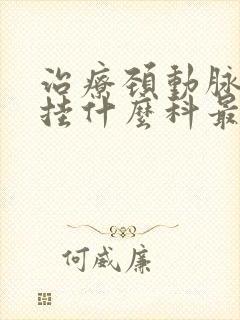 治療頸動脈
挂什麼科最
何威廉